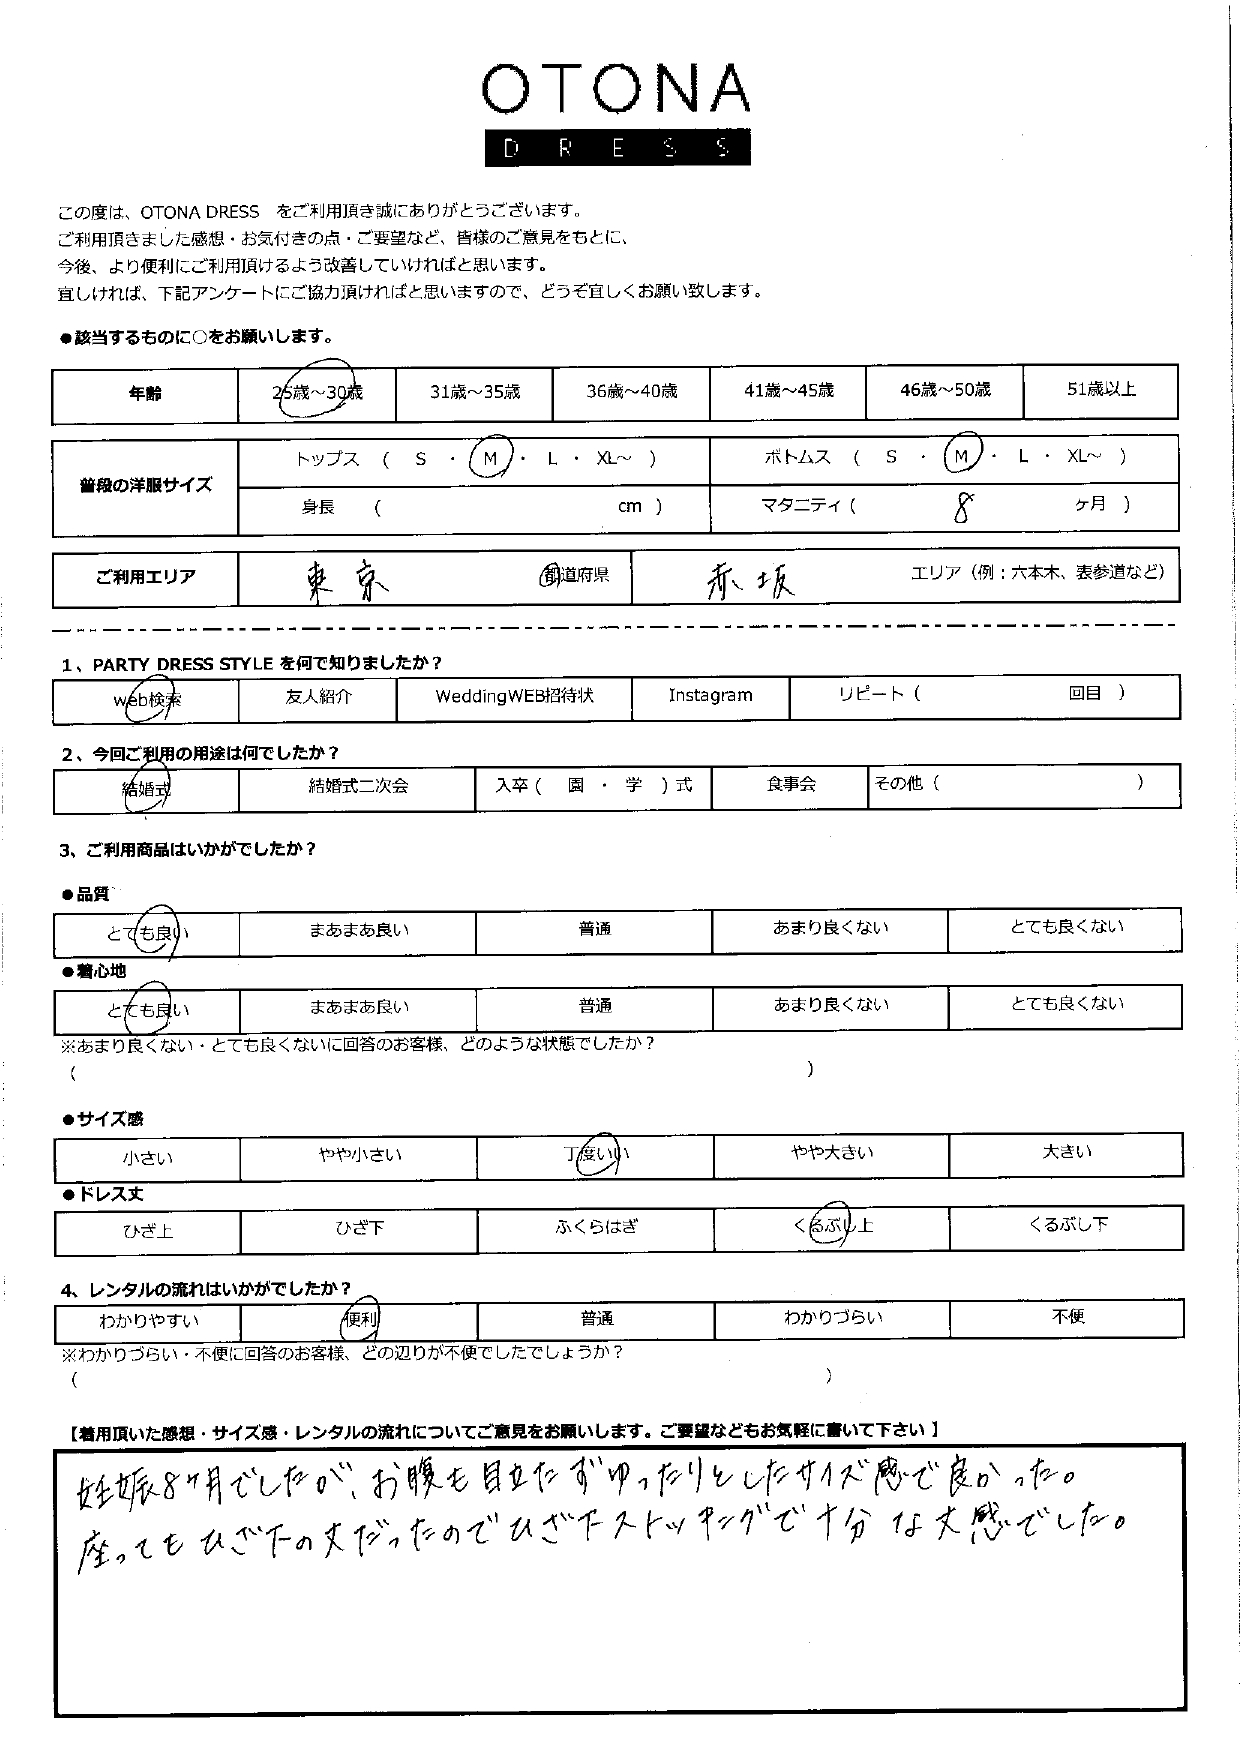 OTONA
DRESS
この度は、OTONA DRESS をご利用頂き誠にありがとうございます。
ご利用頂きました感想・お気付きの点・ご要望など、皆様のご意見をもとに、
今後、より便利にご利用頂けるよう改善していければと思います。
宜しければ、下記アンケートにご協力頂ければと思いますので、どうぞ宜しくお願い致します。
●該当するものに○をお願いします。
年齢 25歳～30歳 31歳～35歳 36歳～40歳 41歳～45歳 46歳～50歳 51歳以上
普段の洋服サイズ トップス ( S ・ M ・ L ・ XL～ ) ボトムス ( S ・ M ・ L ・ XL～ )
身長 ( cm ) マタニティ ( 8 ヶ月 )
ご利用エリア 東京 都道府県 赤坂 エリア（例：六本木、表参道など）
1、PARTY DRESS STYLE を何で知りましたか？
web検索 友人紹介 WeddingWEB招待状 Instagram リピート ( 回目 )
2、今回ご利用の用途は何でしたか？
結婚式 結婚式二次会 入卒 ( 園 ・ 学 ) 式 食事会 その他 ( )
3、ご利用商品はいかがでしたか？
●品質
とても良い まあまあ良い 普通 あまり良くない とても良くない
●着心地
とても良い まあまあ良い 普通 あまり良くない とても良くない
※あまり良くない・とても良くないに回答のお客様、どのような状態でしたか？
( )
●サイズ感
小さい やや小さい 丁度いい やや大きい 大きい
●ドレス丈
ひざ上 ひざ下 ふくらはぎ くるぶし上 くるぶし下
4、レンタルの流れはいかがでしたか？
わかりやすい 便利 普通 わかりづらい 不便
※わかりづらい・不便に回答のお客様、どの辺りが不便でしたでしょうか？
( )
【着用頂いた感想・サイズ感・レンタルの流れについてご意見をお願いします。ご要望などもお気軽に書いて下さい】
妊娠8ヶ月でしたが、お腹も目立たずゆったりとしたサイズ感で良かった。
座ってもひざ下の丈だったのでひざ下ストッキングで十分な丈感でした。